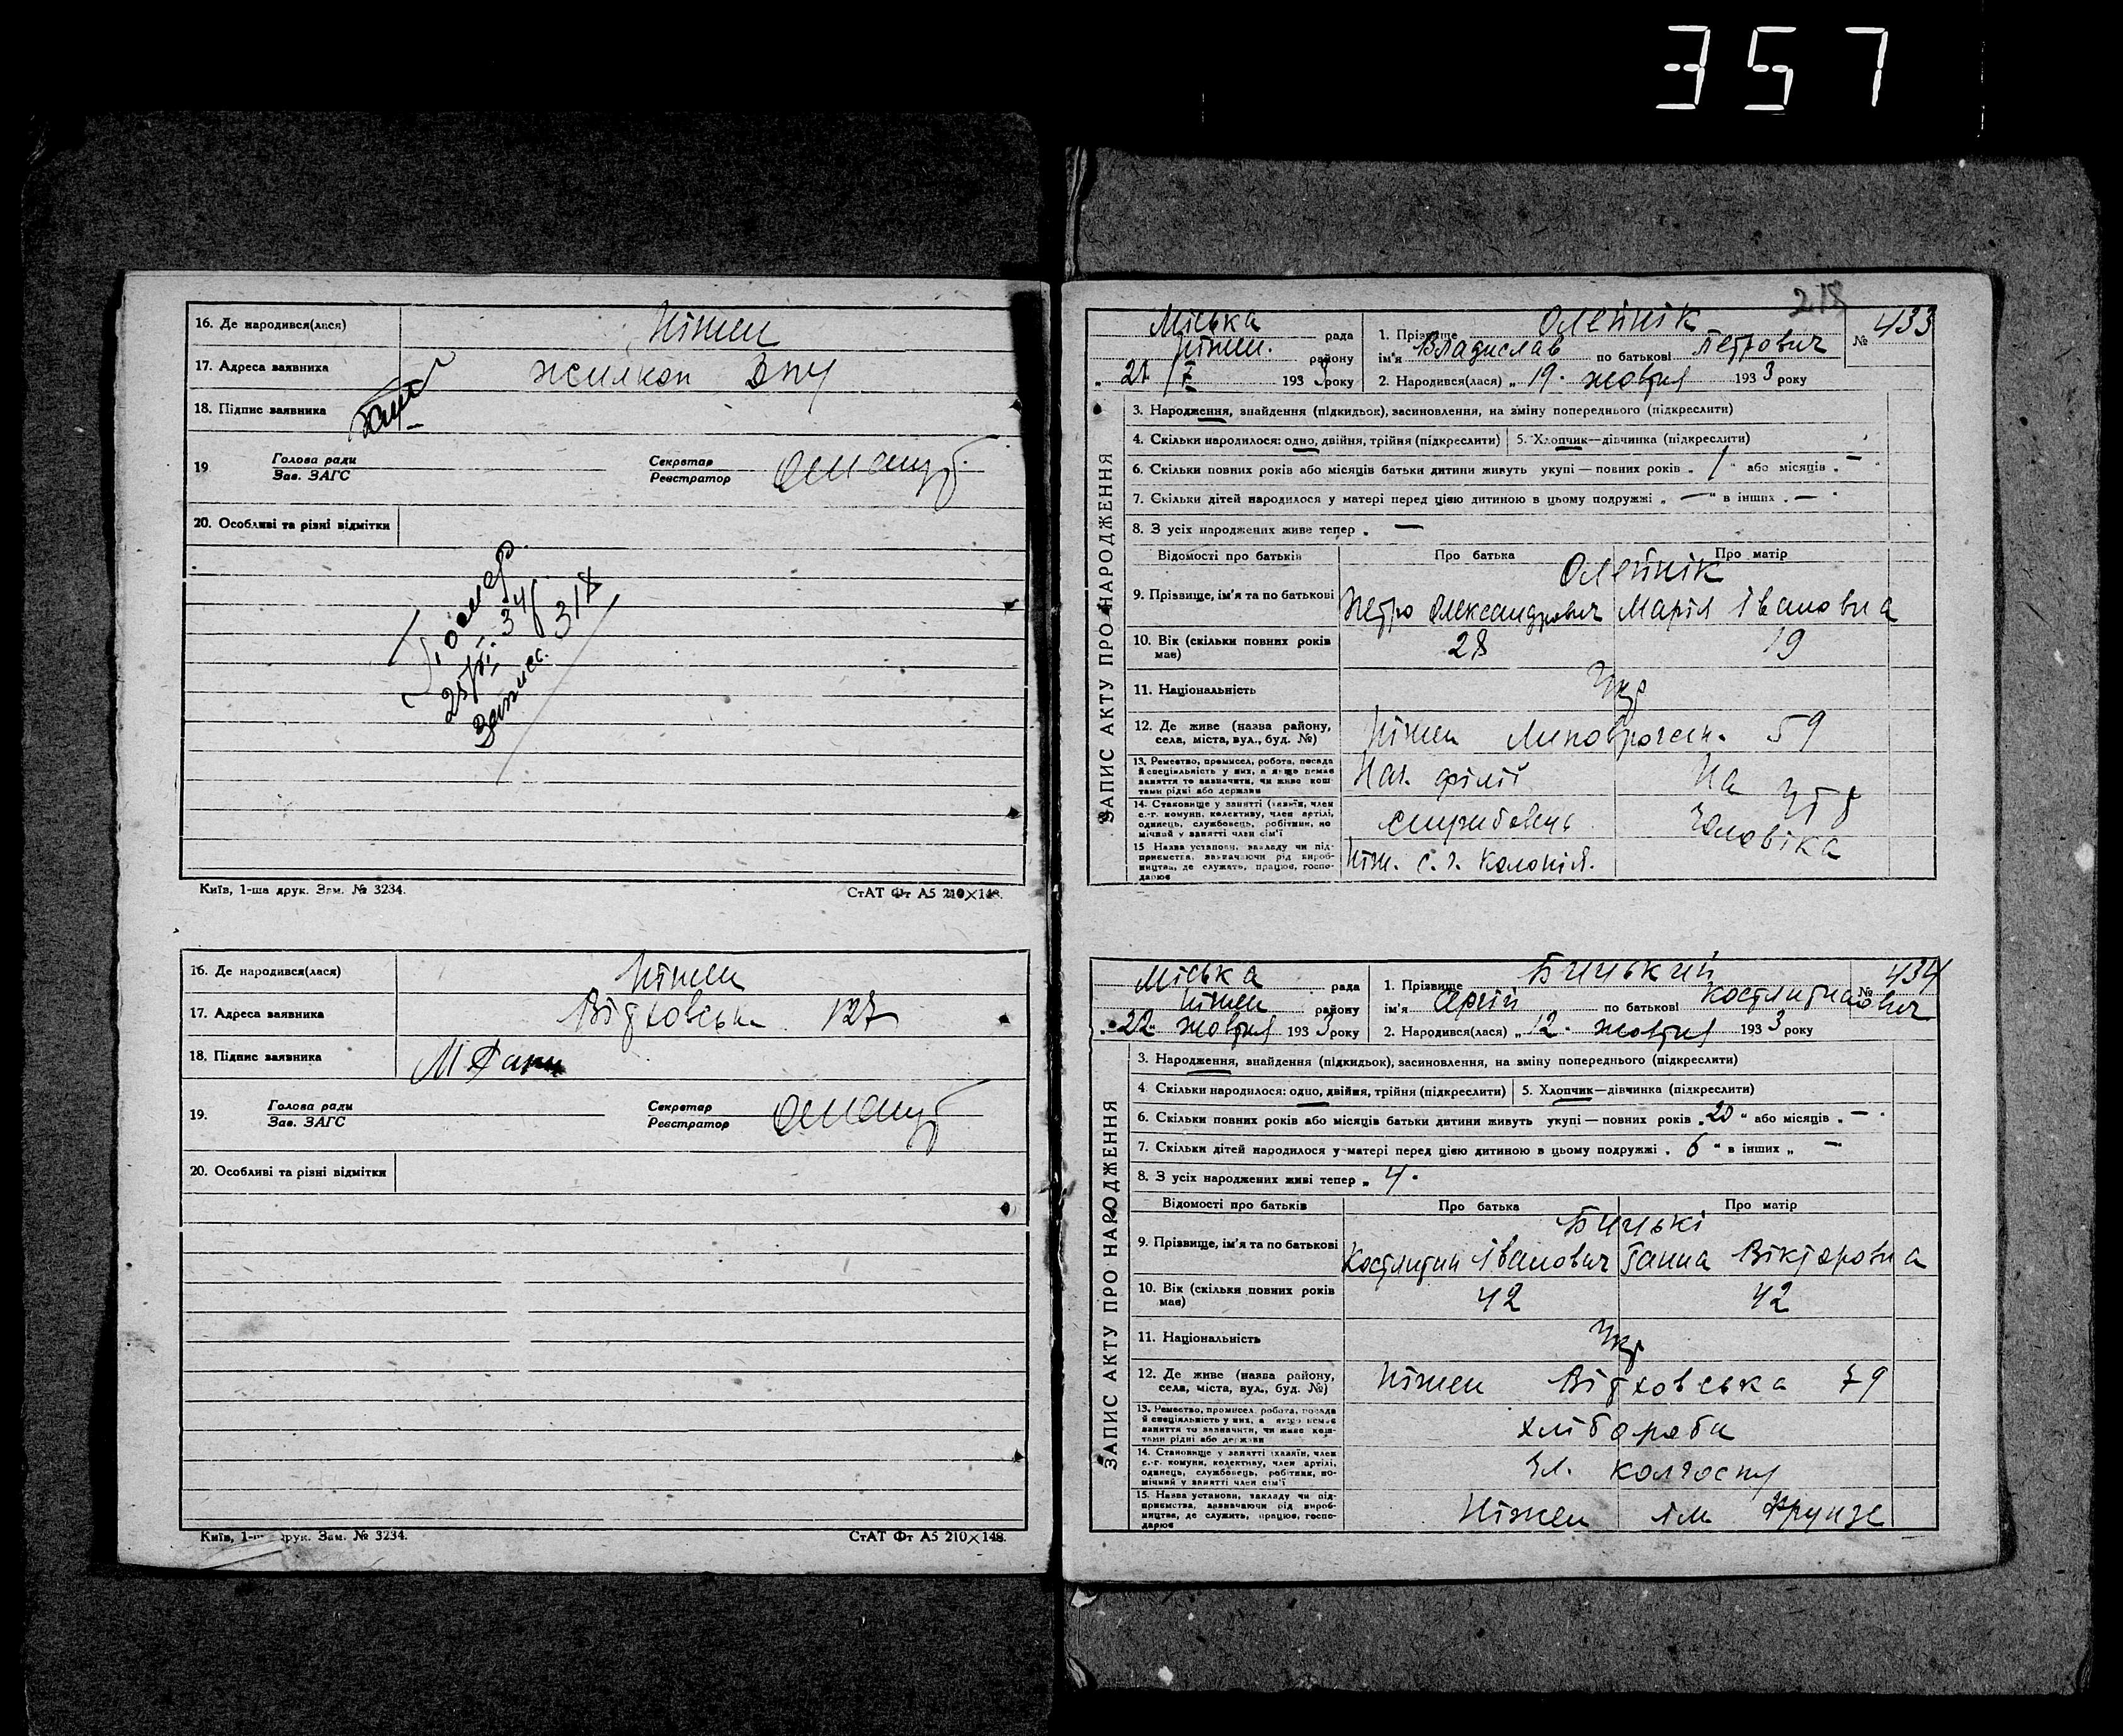 357
16. Де народився(лася) Ніжен
17. Адреса заявника Жилкоп ДПУ
18. Підпис заявника
19 Голова ради
Зав. ЗАГС
Секретар
Реєстратор
20. Особливі та різні відмітки
Помер
34
Запис. 318
Київ, 1-ша друк. Зам. № 3234.
СтАТ Фт А5 210×148.
16. Де народився(лася) Ніжен
17. Адреса заявника 127
18. Підпис заявника
19. Голова ради
Зав. ЗАГС
Секретар
Реєстратор
20. Особливі та різні відмітки
Київ, 1-ша друк. Зам. № 3234.
СтАТ Фт А5 210×148.
218
ЗАПИС АКТУ ПРО НАРОДЖЕННЯ
Міська рада
Ніжен. району
„ 21/X 1933 року
1. Прізвище Олейнік № 433
ім'я Владислав по батькові Петрович
2. Народився(лася) „ 19. жовтня 1933 року
3. Народження, знайдення (підкидьок), засиновлення, на зміну попереднього (підкреслити)
4. Скільки народилося: одно, двійня, трійня (підкреслити) 5. Хлопчик—дівчинка (підкреслити)
6. Скільки повних років або місяців батьки дитини живуть укупі — повних років „ 1 " або місяців „ —
7. Скільки дітей народилося у матері перед цією дитиною в цьому подружжі „ — " в інших „ — "
8. З усіх народжених живе тепер „ —
Відомості про батьків Про батька Про матір
Олейнік
9. Прізвище, ім'я та по батькові Петро Олександрович Марія Івановна
10. Вік (скільки повних років має) 28 19
11. Національність Укр
12. Де живе (назва району, села, міста, вул., буд. №) Ніжен 59
13. Ремество, промисел, робота, посада й спеціяльність у них, а якщо немає заняття то зазначити, чи живе коштами рідні або держави Нач. філії На утр
14. Становище у занятті (хазяїн, член с.-г. комуни, колективу, член артілі, одинець, службовець, робітник, помічний у занятті член сім'ї службовець Чоловіка
15 Назва установи, закладу чи підприємства, зазначаючи рід виробництва, де служить, працює, господарює Ніж. с. г. колонія.
ЗАПИС АКТУ ПРО НАРОДЖЕННЯ
Міська рада
Ніжен району
„ 22. жовтня 1933 року
1. Прізвище Бицький № 434
ім'я Сергій по батькові Костянтинович
2. Народився(лася) „ 12. жовтня 1933 року
3. Народження, знайдення (підкидьок), засиновлення, на зміну попереднього (підкреслити)
4. Скільки народилося: одно, двійня, трійня (підкреслити) 5. Хлопчик—дівчинка (підкреслити)
6. Скільки повних років або місяців батьки дитини живуть укупі — повних років „ 20 " або місяців „ —
7. Скільки дітей народилося у матері перед цією дитиною в цьому подружжі „ 6 " в інших „ —
8. З усіх народжених живі тепер „ 4.
Відомості про батьків Про батька Про матір
Бицькі
9. Прізвище, ім'я та по батькові Костянтин Іванович Ганна Вікторовна
10. Вік (скільки повних років має) 42 42
11. Національність Укр
12. Де живе (назва району, села, міста, вул., буд. №) Ніжен 79
13. Ремество, промисел, робота, посада й спеціяльність у них, а якщо немає заняття то зазначити, чи живе коштами рідні або держави хлібороби
14. Становище у занятті (хазяїн, член с.-г. комуни, колективу, член артілі, одинець, службовець, робітник, помічний у занятті член сім'ї чл. колгоспу
15. Назва установи, закладу чи підприємства, зазначаючи рід виробництва, де служить, працює, господарює Ніжен ім Фрунзе